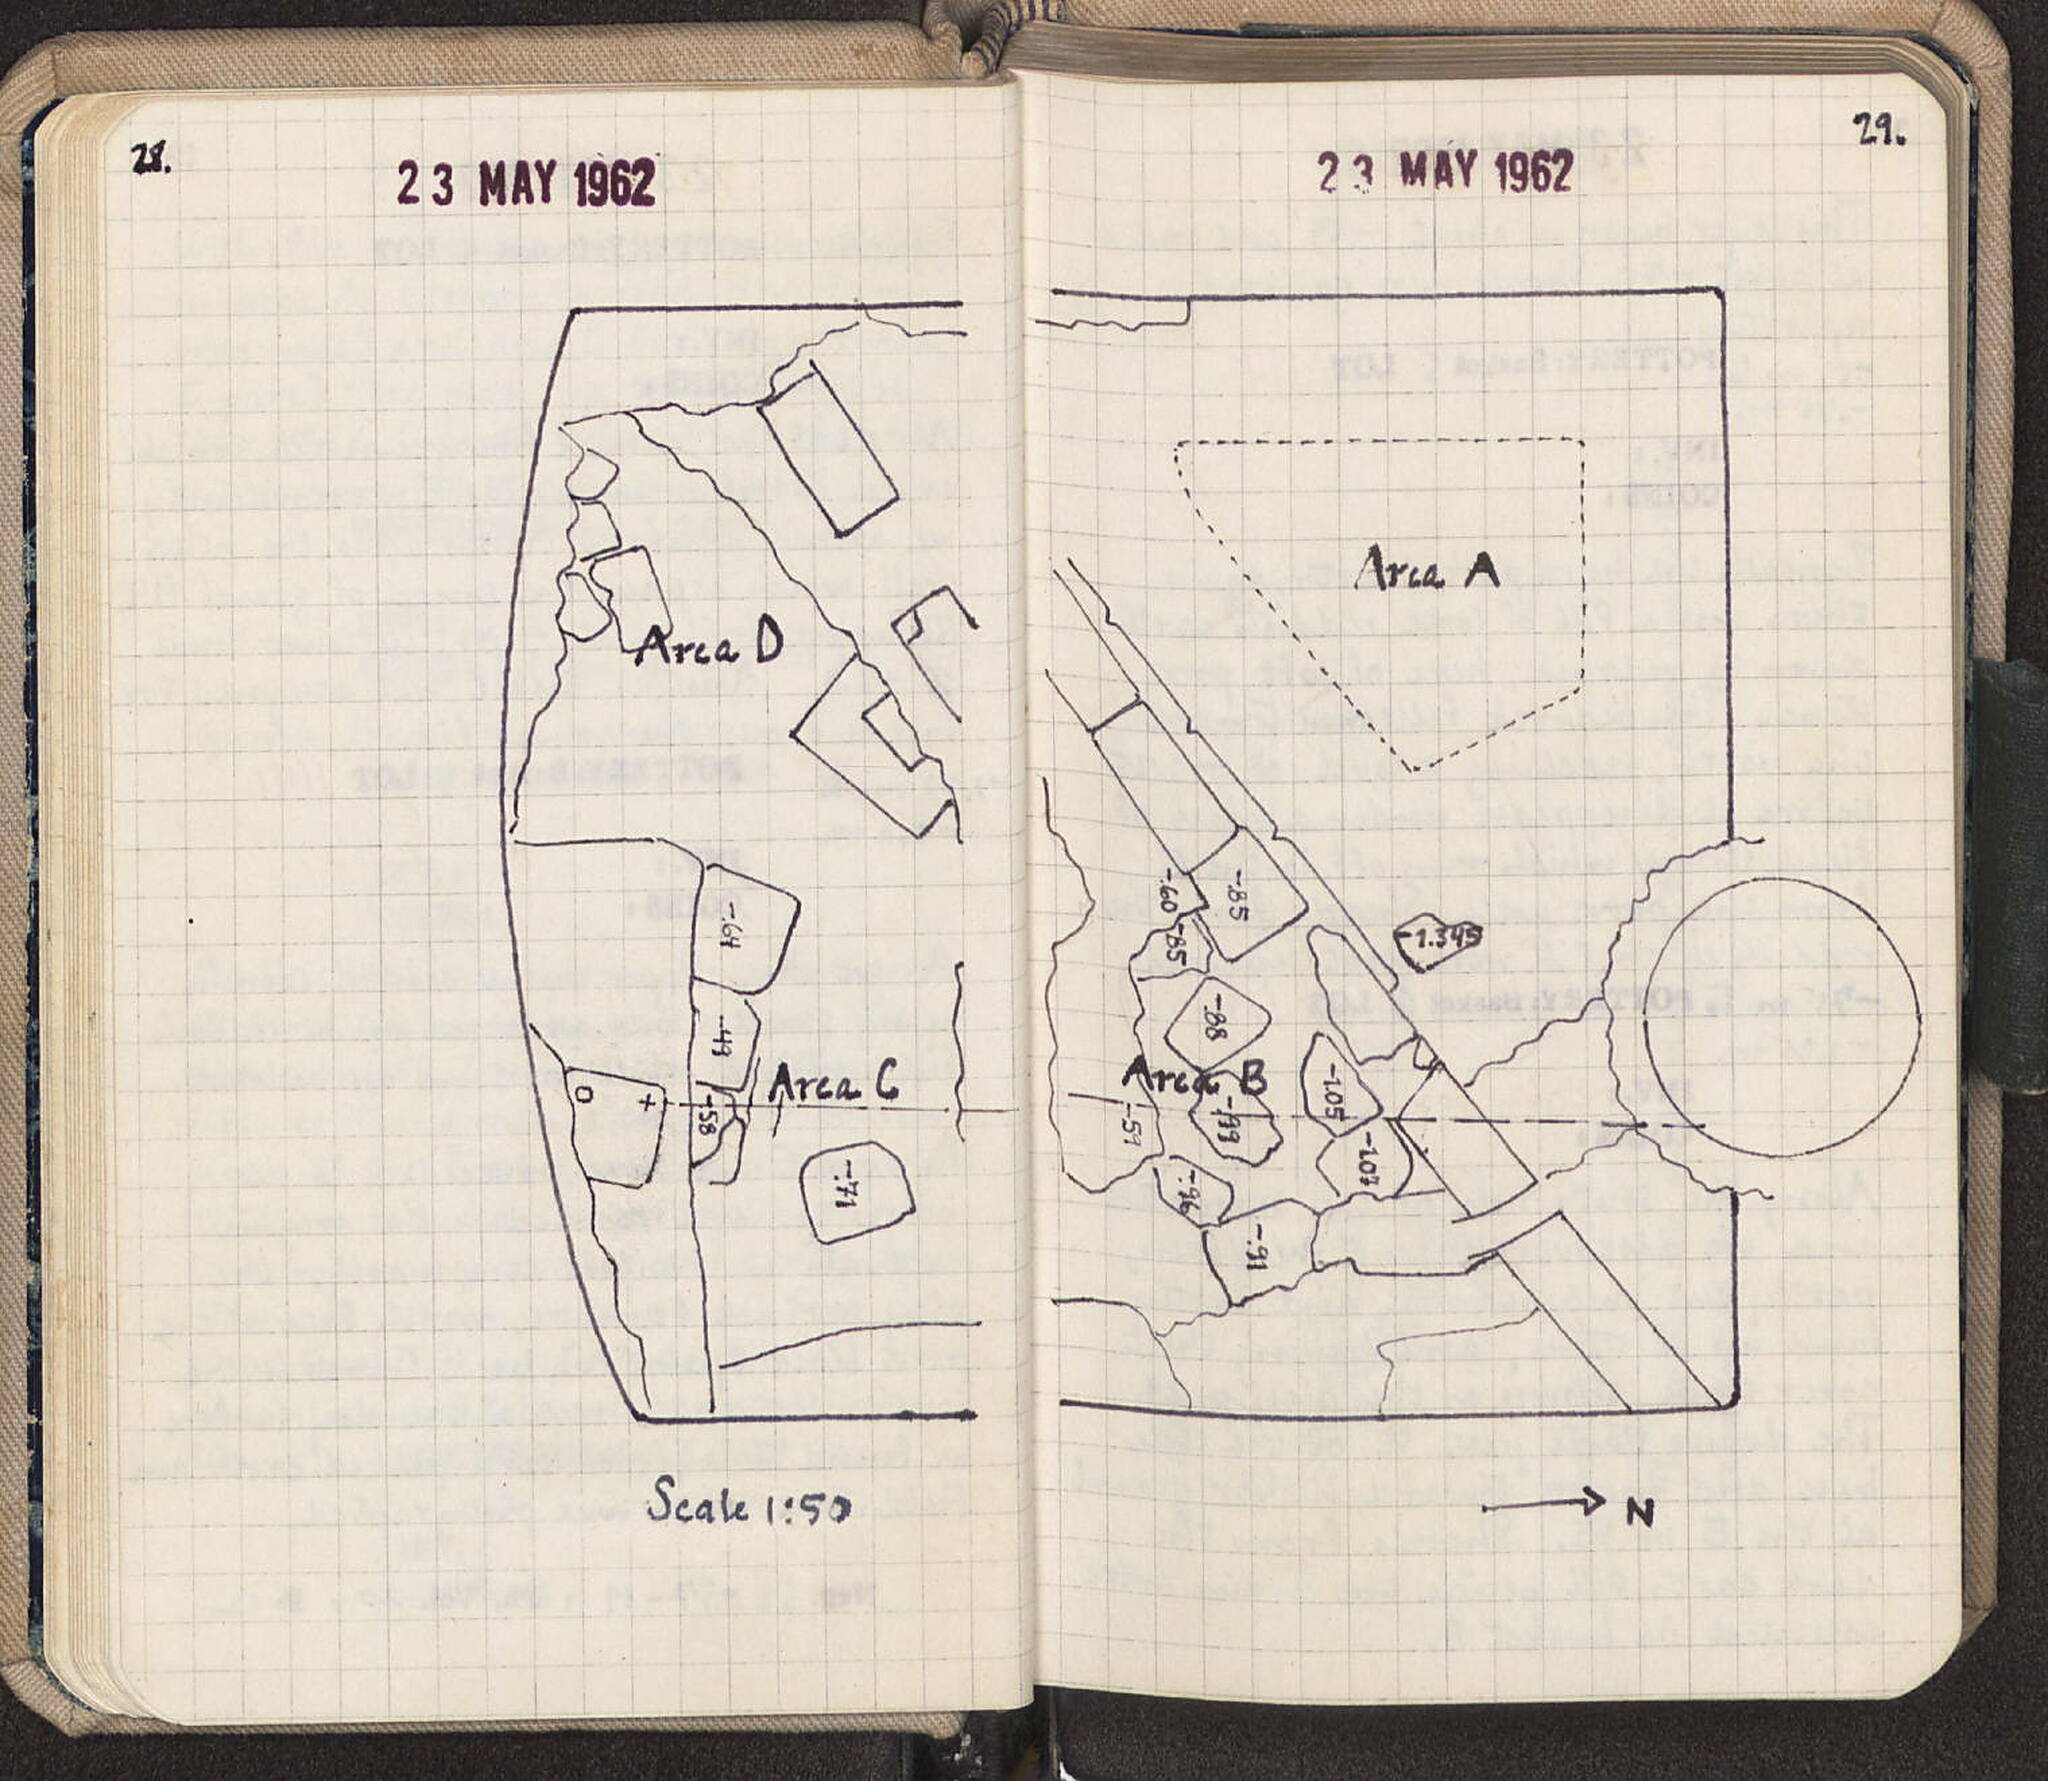 28.
23 MAY 1962
Area D
-.64
-.49
Area C
-.58
-.71
Scale 1:50
29.
23 MAY 1962
Area A
-.60
-.85
-.85
-1.345
-.88
Area B
-.59
-.99
-1.05
-1.07
-.96
-.91
N